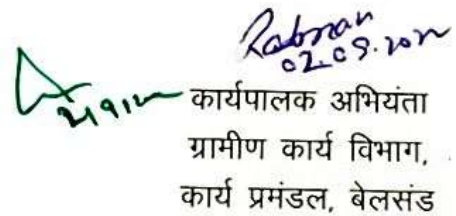 02.09.2022
कार्यपालक अभियंता
ग्रामीण कार्य विभाग,
कार्य प्रमंडल, बेलसंड